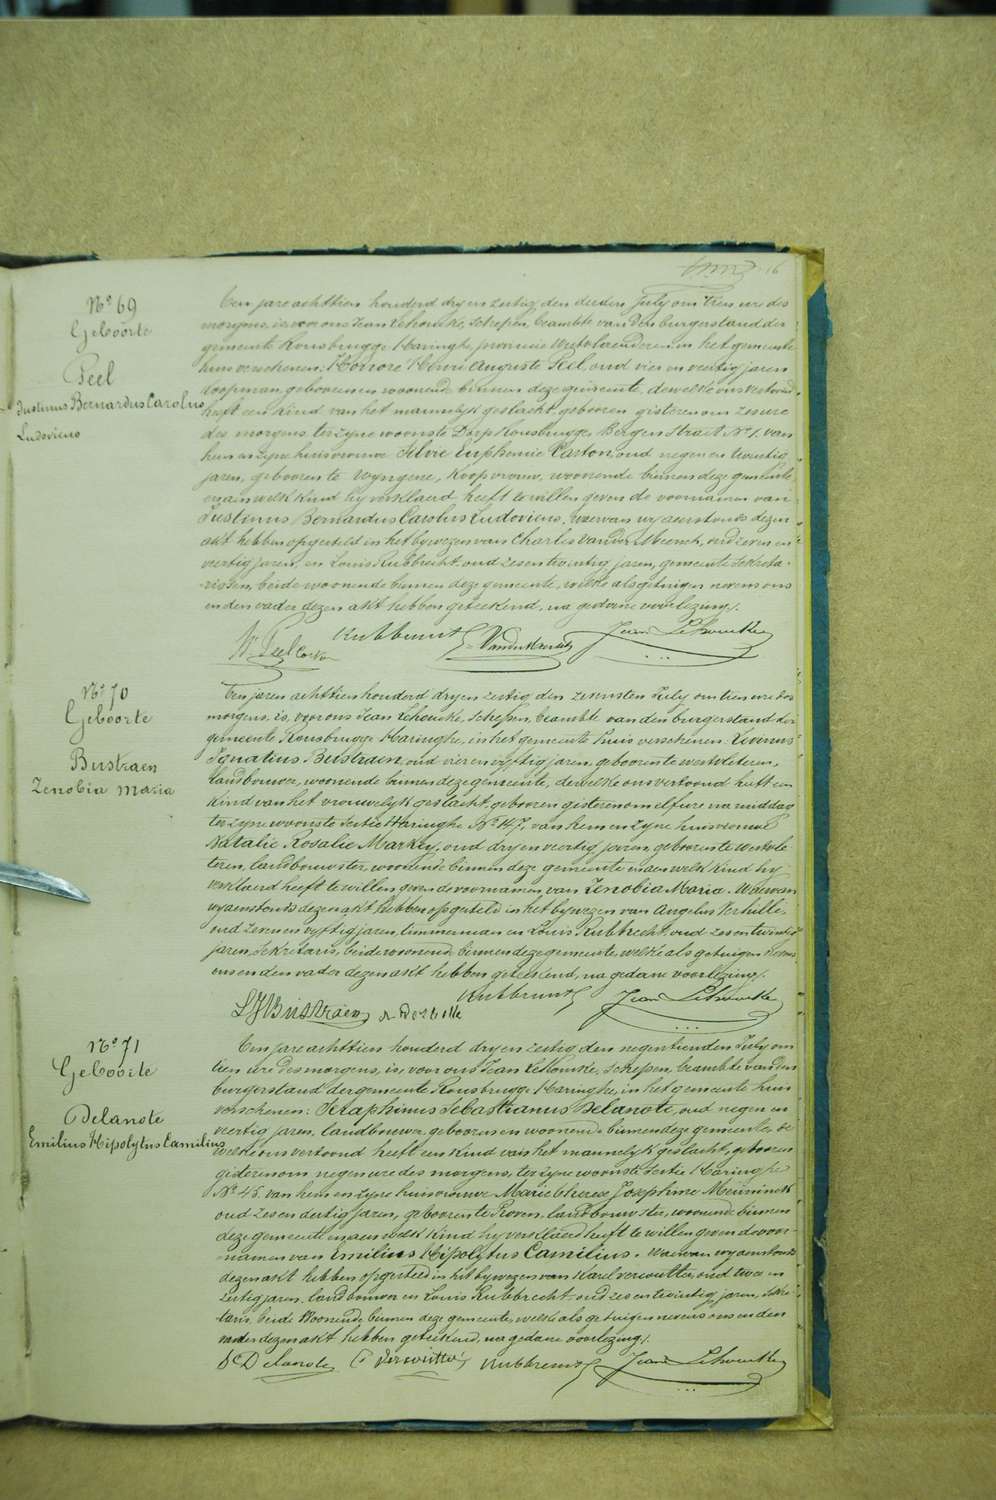 16
N° 69
Geboorte
Peel
Justinus Bernardus Carolus
Ludovicus
Een jare achttien honderd dry en zestig, den derden July om tien ure des
morgens, is, voor ons Jean Lehoucke, schepen, beambte van den burgerstand der
gemeente Rousbrugge Haringhe, provincie Westvlaenderen in het gemeente
huis verschenen: Honoré Henri Auguste Peel, oud vier en veertig jaren
koopman, geboren en woonende binnen deze gemeente, dewelke ons vertoond
heeft een kind van het mannelyk geslacht, geboren gisteren om zes ure
des morgens, ter zyne woonste Dorp Rousbrugge, Bergen Straet N° 1, van
hem en zyne huisvrouw Silvie Euphemie Carton, oud negen en twintig
jaren, geboren te Wyngene, koopvrouw, woonende binnen deze gemeente
en aen welk kind hy verklaerd heeft te willen geven de voornamen van
Justinus Bernardus Carolus Ludovicus, waervan wy aenstonds dezen
akt hebben opgesteld in het bywezen van Charles Vander Meersch, oud zeven en
veertig jaren, en Louis Rubbrecht, oud zes en twintig jaren, gemeente sekreta-
rissen, beide woonende binnen deze gemeente, welke als getuigen nevens ons
en den vader dezen akt hebben geteekend, na gedane voorlezing.
Hri Peel Carton Rubbrecht Vandermeersch Jean Lehoucke
N° 70
Geboorte
Bustraen
Zenobia Maria
Een jaren achttien honderd dry en zestig, den zesensten July om tien ure des
morgens, is, voor ons Jean Lehoucke, schepen, beambte van den burgerstand der
gemeente Rousbrugge Haringhe, in het gemeente huis verschenen: Livinus
Ignatius Bustraen, oud vier en vyftig jaren, geboren te Westvleteren,
landbouwer, woonende binnen deze gemeente, dewelke ons vertoond heeft een
kind van het vrouwelyk geslacht, geboren gisteren om elf ure na middag
ter zyne woonste Sectie Haringhe N° 147, van hem en zyne huisvrouwe
Natalie Rosalie Markey, oud dry en veertig jaren, geboren te Westvle
teren, landbouwster, woonende binnen deze gemeente en aen welk kind hy
verklaerd heeft te willen geven de voornamen van Zenobia Maria. Waervan
wy aenstonds dezen akt hebben opgesteld in het bywezen van Angelus Verhille,
oud zeven en vyftig jaren, timmerman en Louis Rubbrecht oud zes en twintig
jaren, sekretaris, beide woonende binnen deze gemeente, welke als getuigen nevens
ons en den vader dezen akt hebben geteekend, na gedane voorlezing.
L J Bustraen A Verhille Rubbrecht Jean Lehoucke
N° 71
Geboorte
Delanote
Emilius Hipolytus Camilius
Een jare achttien honderd dry en zestig, den negentienden July om
tien ure des morgens, is, voor ons Jean Lehoucke, schepen, beambte van den
burgerstand der gemeente Rousbrugge Haringhe, in het gemeente huis
verschenen: Seraphinus Sebastianus Delanote, oud negen en
veertig jaren, landbouwer, geboren en woonende binnen deze gemeente, de
welke ons vertoond heeft een kind van het mannelyk geslacht, geboren
gisteren om negen ure des morgens, ter zyne woonste Sectie Haringhe
N° 45, van hem en zyne huisvrouwe Marie Therese Josephine Meuninck
oud zes en dertig jaren, geboren te Proven, landbouwster, woonende binnen
deze gemeente en aen welk kind hy verklaerd heeft te willen geven de voor-
namen van Emilius Hipolytus Camilius. Waervan wy aenstonds
dezen akt hebben opgesteld in het bywezen van Karel Verwitter, oud twee en
zestig jaren, landbouwer en Louis Rubbrecht oud zes en twintig jaren, sekre
taris, beide woonende binnen deze gemeente, welke als getuigen nevens ons en den
vader dezen akt hebben geteekend, na gedane voorlezing.
Delanote Verwitter Rubbrecht Jean Lehoucke